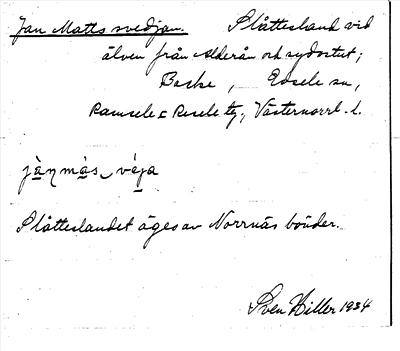 Jan Mattssvedjan. Slåttesland vid
älven från Alderån och sydostut;
Backe, Edsele sn,
Ramsele o Resele tg, Västernorrl. l.
Slåtteslandet äges av Norrnäs bönder.
Sven Hiller 1934